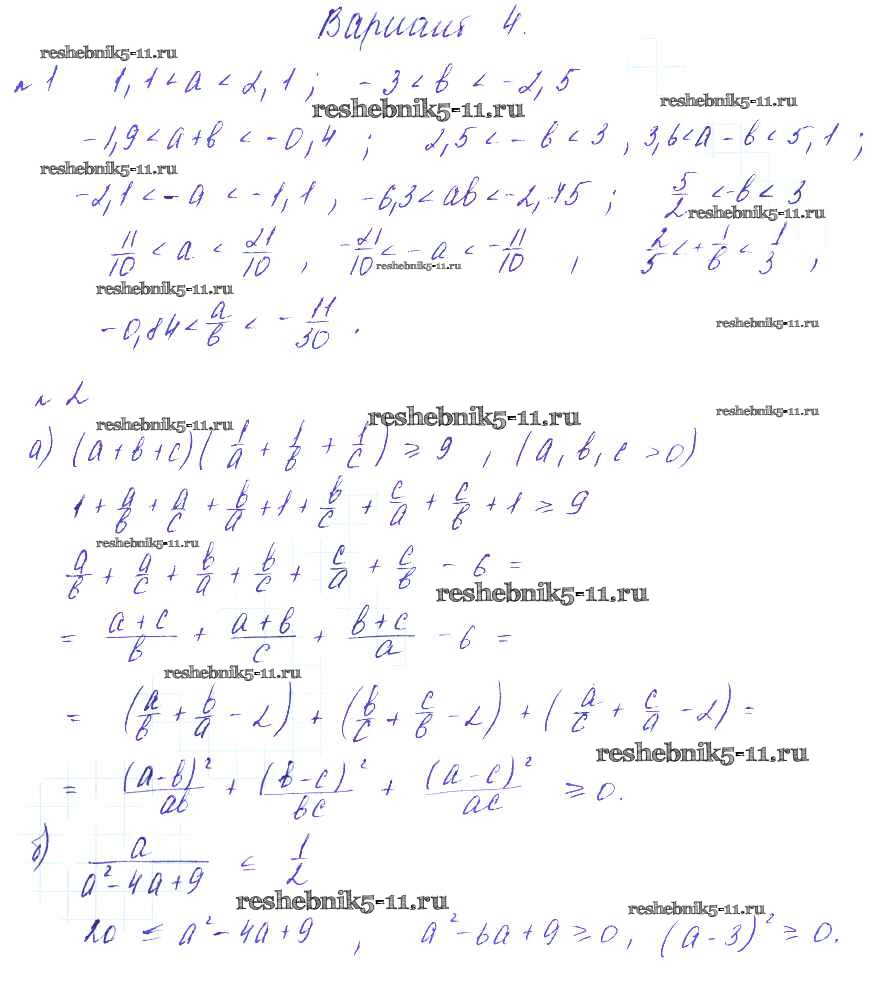 Вариант 4.
reshebnik5-11.ru
№1 1,1 < a < 2,1 ; -3 < b < -2,5
reshebnik5-11.ru reshebnik5-11.ru
-1,9 < a+b < -0,4 ; 2,5 < -b < 3 , 3,6 < a - b < 5,1 ;
reshebnik5-11.ru
-2,1 < -a < -1,1 , -6,3 < ab < -2,75 ; 5/2 < -b < 3
reshebnik5-11.ru
11/10 < a < 21/10 , -21/10 < -a < -11/10 , 2/5 < +1/b < 1/3 ,
reshebnik5-11.ru
reshebnik5-11.ru
-0,84 < a/b < -11/30 .
reshebnik5-11.ru
№2
reshebnik5-11.ru reshebnik5-11.ru reshebnik5-11.ru
а) (a+b+c)(1/a + 1/b + 1/c) ≥ 9 , (a, b, c > 0)
1 + a/b + a/c + b/a + 1 + b/c + c/a + c/b + 1 ≥ 9
reshebnik5-11.ru
a/b + a/c + b/a + b/c + c/a + c/b - 6 =
reshebnik5-11.ru
= (a+c)/b + (a+b)/c + (b+c)/a - 6 =
reshebnik5-11.ru
= (a/b + b/a - 2) + (b/c + c/b - 2) + (a/c + c/a - 2) =
reshebnik5-11.ru
= (a-b)²/ab + (b-c)²/bc + (a-c)²/ac ≥ 0.
б) a/(a²-4a+9) ≤ 1/2
reshebnik5-11.ru reshebnik5-11.ru
2a ≤ a²-4a+9 , a²-6a+9 ≥ 0, (a-3)² ≥ 0.